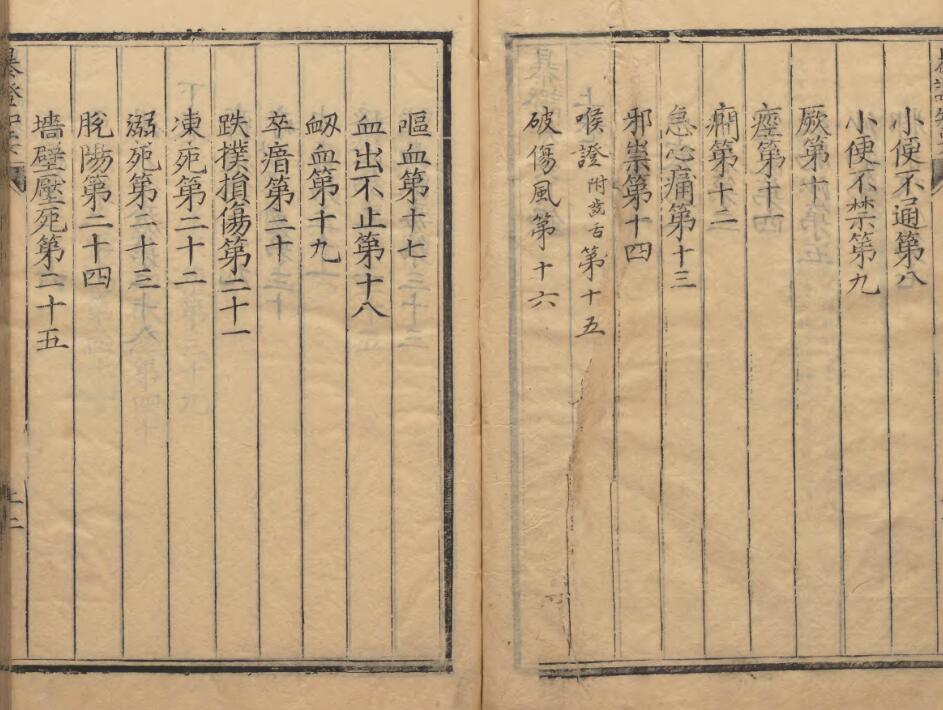 小便不通第八
小便不禁第九
厥第十
痙第十一
癇第十二
急心痛第十三
邪祟第十四
喉證附齒舌第十五
破傷風第十六
嘔血第十七
血出不止第十八
衂血第十九
卒瘖第二十
跌撲損傷第二十一
凍死第二十二
溺死第二十三
脫陽第二十四
墻壁壓死第二十五
上二